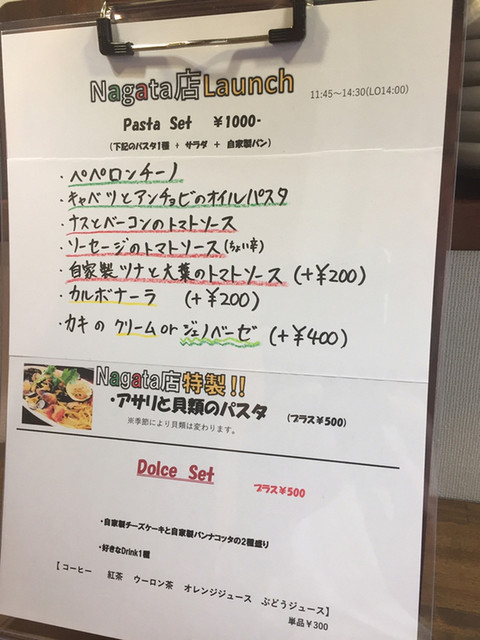 Nagata店Launch 11:45～14:30(LO14:00)
Pasta Set ￥1000-
(下記のパスタ1種 + サラダ + 自家製パン)
・ペペロンチーノ
・キャベツとアンチョビのオイルパスタ
・ナスとベーコンのトマトソース
・ソーセージのトマトソース(ちょい辛)
・自家製ツナと大葉のトマトソース (+￥200)
・カルボナーラ (+￥200)
・カキの クリーム or ジェノベーゼ (+￥400)
Nagata店特製!!
・アサリと貝類のパスタ (プラス￥500)
※季節により貝類は変わります。
Dolce Set プラス￥500
・自家製チーズケーキと自家製パンナコッタの2種盛り
・好きなDrink1種
【コーヒー 紅茶 ウーロン茶 オレンジジュース ぶどうジュース】
単品￥300